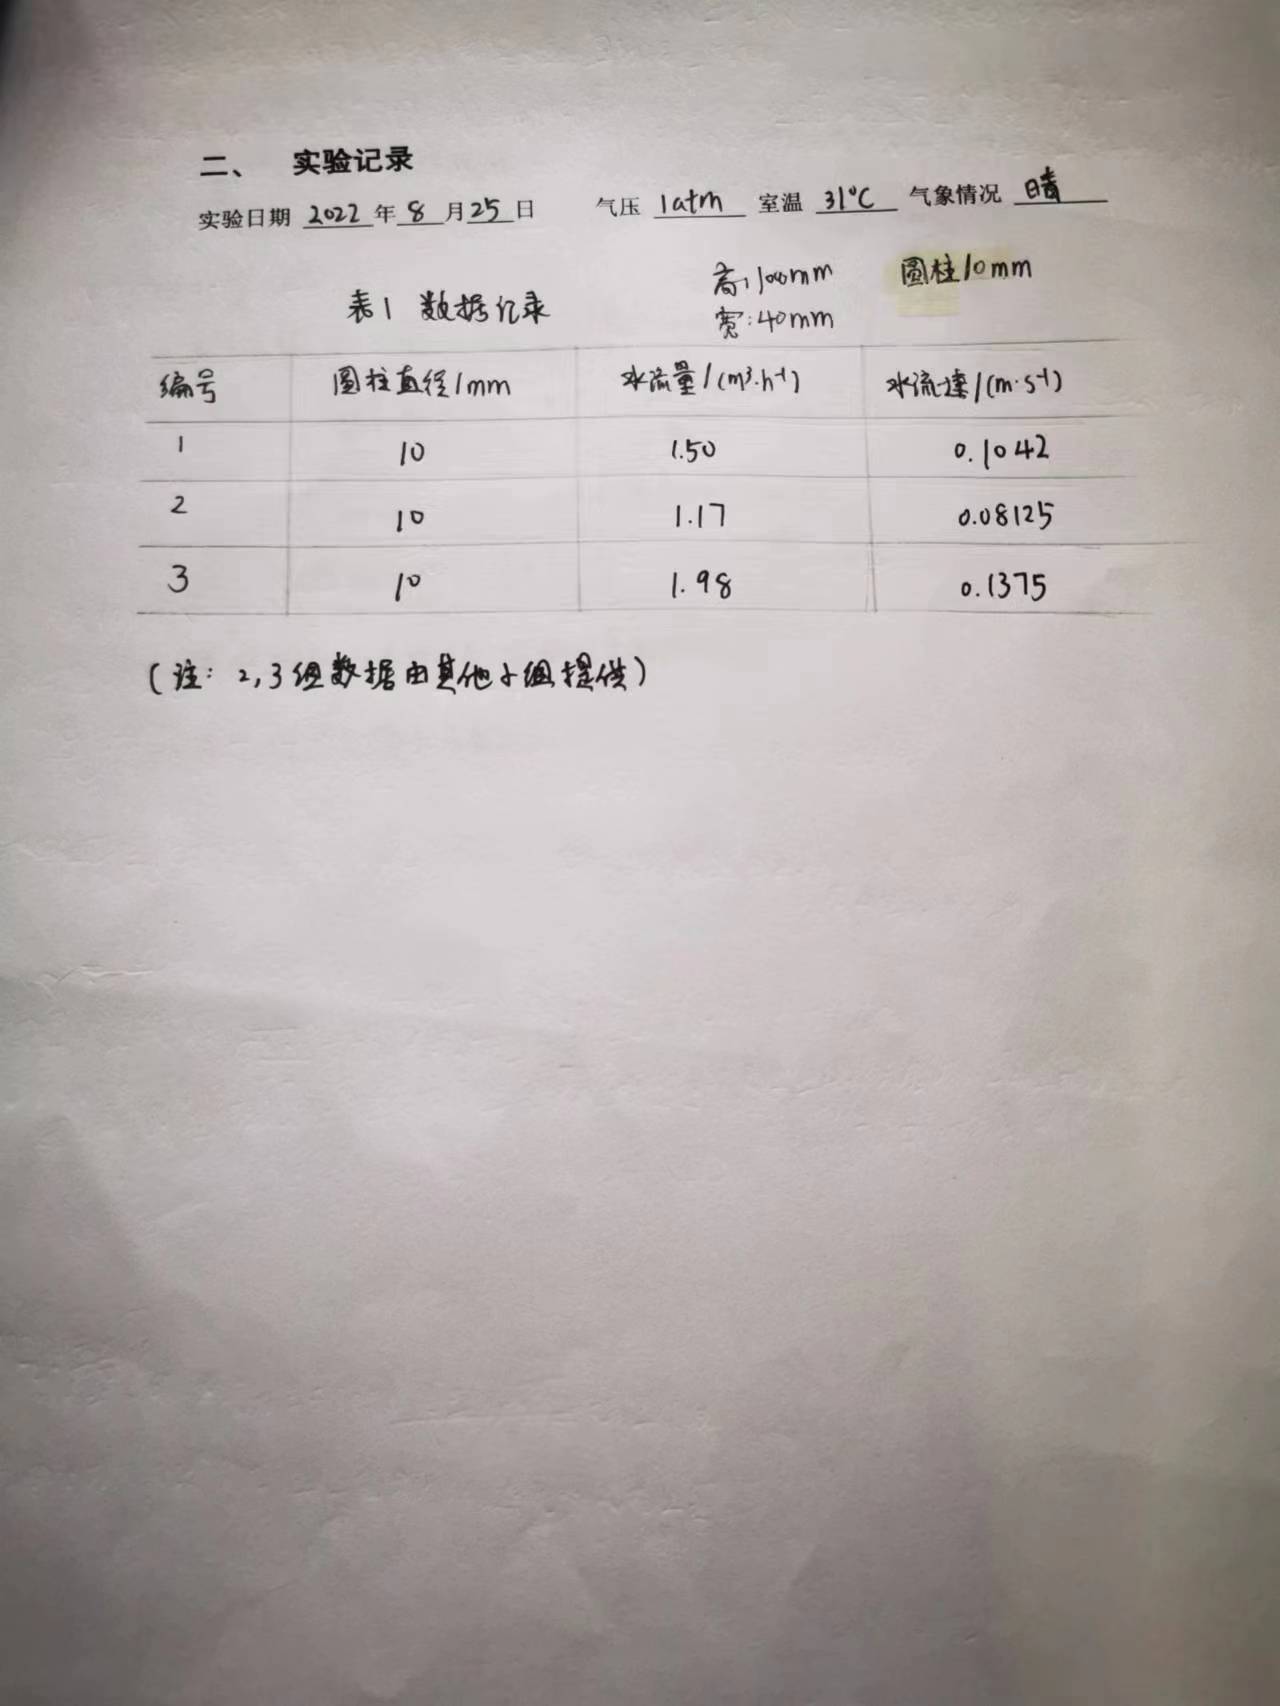 二、 实验记录
实验日期 2022 年 8 月 25 日 气压 1atm 室温 31℃ 气象情况 晴
高:100mm 圆柱10mm
表1 数据记录
宽:40mm
编号 圆柱直径/mm 水流量/(m³·h⁻¹) 水流速/(m·s⁻¹)
1 10 1.50 0.1042
2 10 1.17 0.08125
3 10 1.98 0.1375
(注: 2,3组数据由其他小组提供)